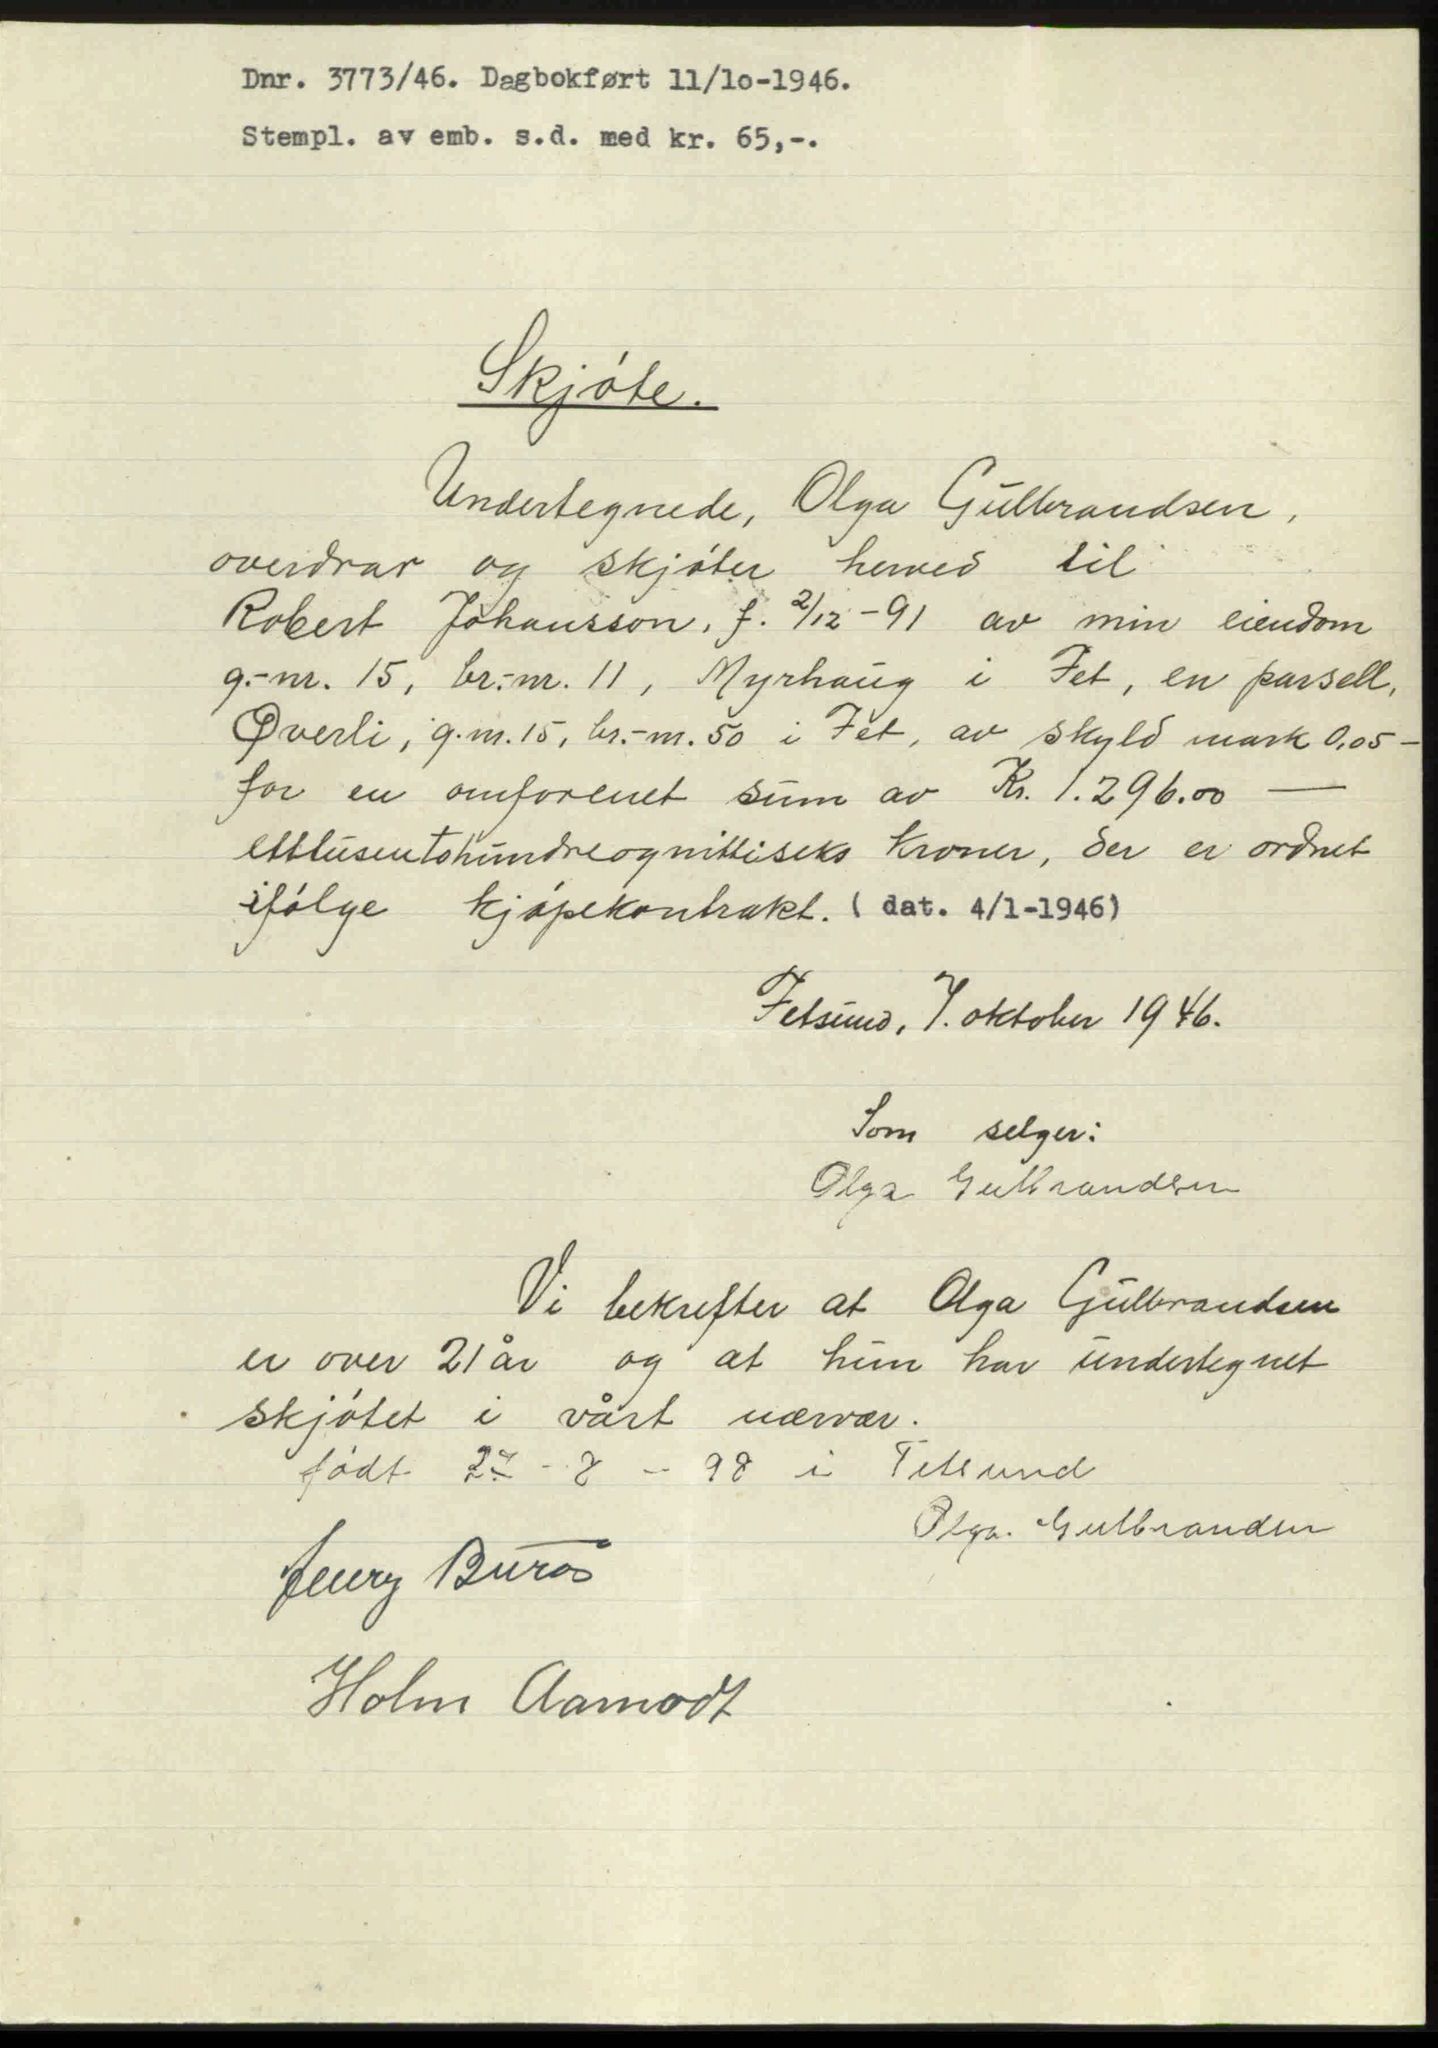 Dnr. 3773/46. Dagbokført 11/10-1946.
Stempl. av emb. s.d. med kr. 65,-.
Skjøte.
Undertegnede, Olga Gulbrandsen,
overdrar og skjøter herved til
Robert Johansson, f. 2/12 - 91 av min eiendom
g.-nr. 15, br.-nr. 11, Myrhaug i Fet, en parsell,
Øverli, g.nr. 15, br.-nr. 50 i Fet, av skyld mark 0,05 -
for en omforenet sum av Kr. 1.296.00 —
ettusentohundreognittiseks kroner, der er ordnet
ifølge kjøpekontrakt. ( dat. 4/1-1946)
Fetsund, 7. oktober 1946.
Som selger:
Olga Gulbrandsen
Vi bekrefter at Olga Gulbrandsen
er over 21 år og at hun har undertegnet
skjøtet i vårt nærvær.
født 27 - 8 - 98 i Fetsund
Olga Gulbrandsen
Henry Burås
Holm Aamodt